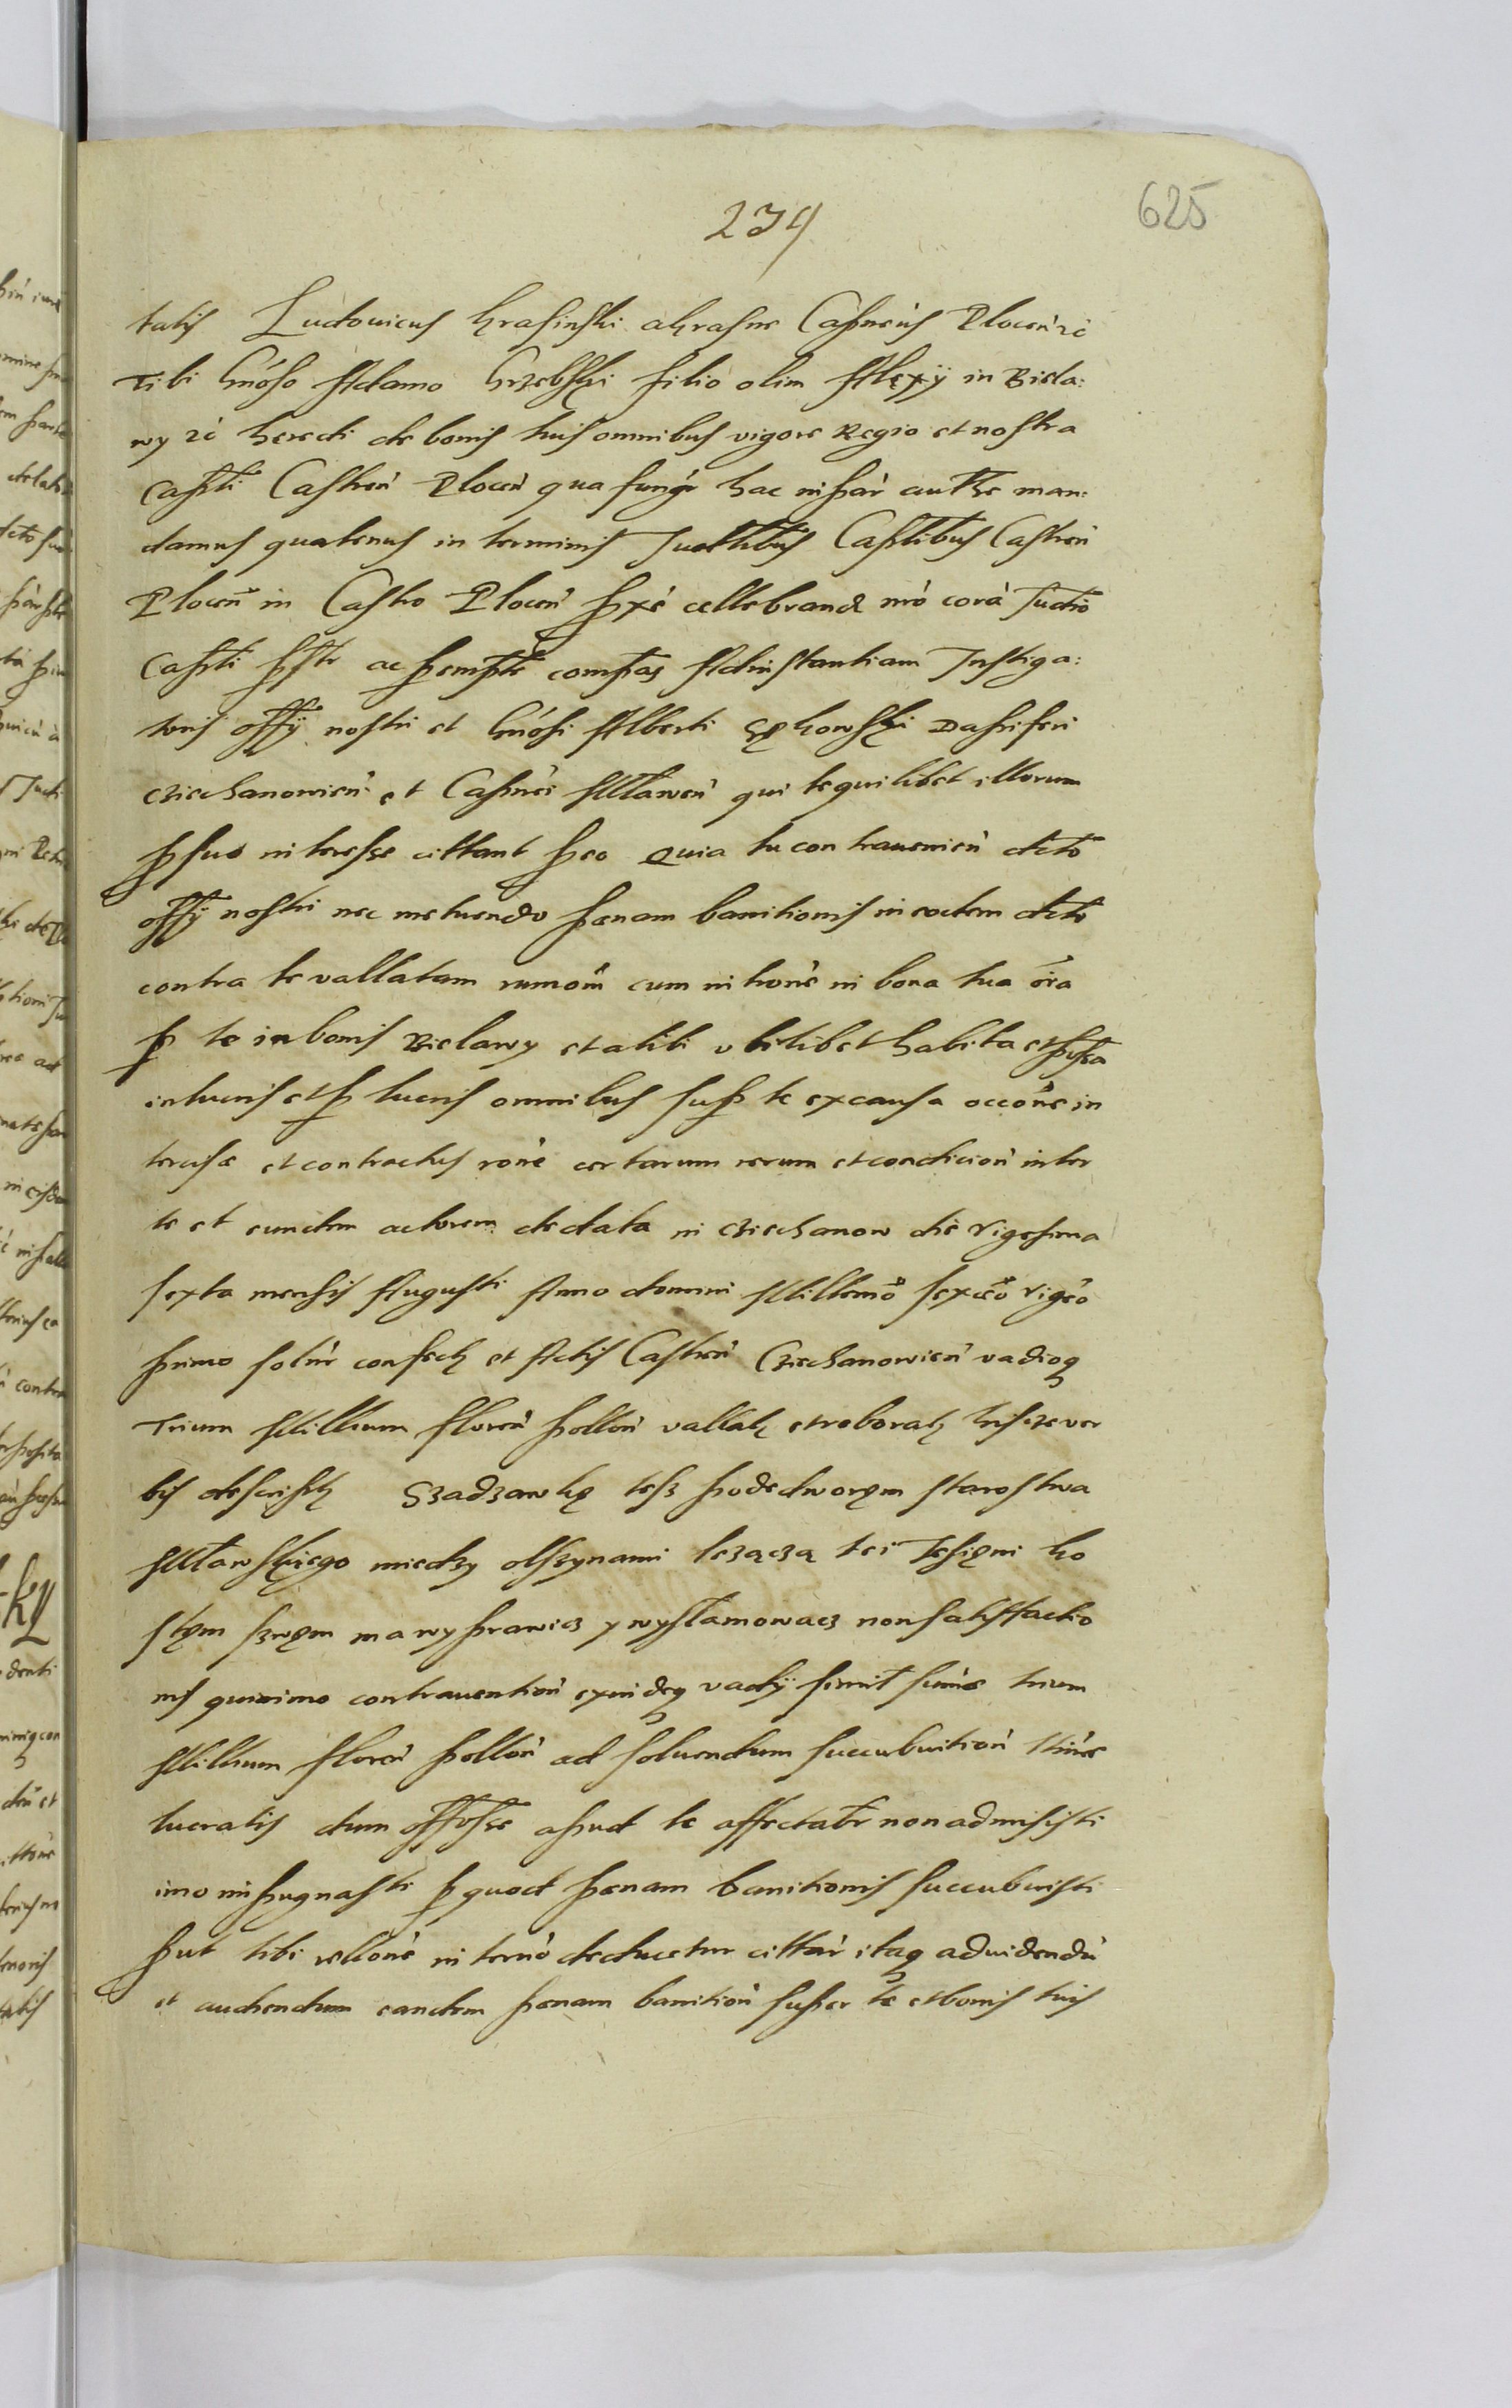 625
234
tatis Ludouicus Krasinski a Krasne Capneus Plocen̄ zc
Tibi Gnōso Adamo Grzebski filio olim Alexÿ in Biela:
wy zc heredi de bonis tuis omnibus vigore Regio et nostra
Capti Castren̄ Plocen̄ qua fungr̄ hac in par̄ authe man:
damus quatenus in terminis Judlibus Captlibus Castren̄
Plocen̄ in Castro Plocen̄ pxe cellebrand nro cora Judio
Capti pstr ac pempte compas Ad instantiam Instiga:
toris offÿ nostri et Gnōsi Alberti Dapiferi
Cziechanowien̄ et Capnei Mławen̄ qui te quilibet illorum
p suo interesse cittant peo Quia tu contrauenien̄ dcto
offÿ nostri nec metuendo pænam banitionis in eodem dcto
contra te vallatam rumom̄ cum intione in bona tua oīa
p te in bonis Bielawy et alibi vbilibet habita et pssa
in lucris et p lucris omnibus sup te ex causa occone in
tercisæ et contractus rone certarum rerum et condicion̄ inter
te et eundem actorem de data in Cziechanow die Vigesima
sexta mensis Augusti Anno domini Millemo sexceo vigeo
primo solnr confect et Actis Castren̄ Cziechanowien̄ vadioq
Trium Millium floren̄ pollon̄ vallat et roborat hisce ver
bis descript Szadzawkę tesz podedworęm starostwa
Mławskiego miedzy olszynami lezącza tei Jesięni ko
stęm szwęm ma wyprawicz y wysłamowacz non satisffactio
nis quinimo contrauention̄ exindeq vadÿ simit sumæ trium
Millium floren̄ pollon̄ ad soluendum succubuition̄
lucratis dum offosse apud te affectatr non admisisti
imo inpugnasti p quod pænam banitionis succubuisti
put tibi rellone in terno deducetur cittar itaq ad videndu
et audiendum eandem pænam banition̄ super te et bonis tuis